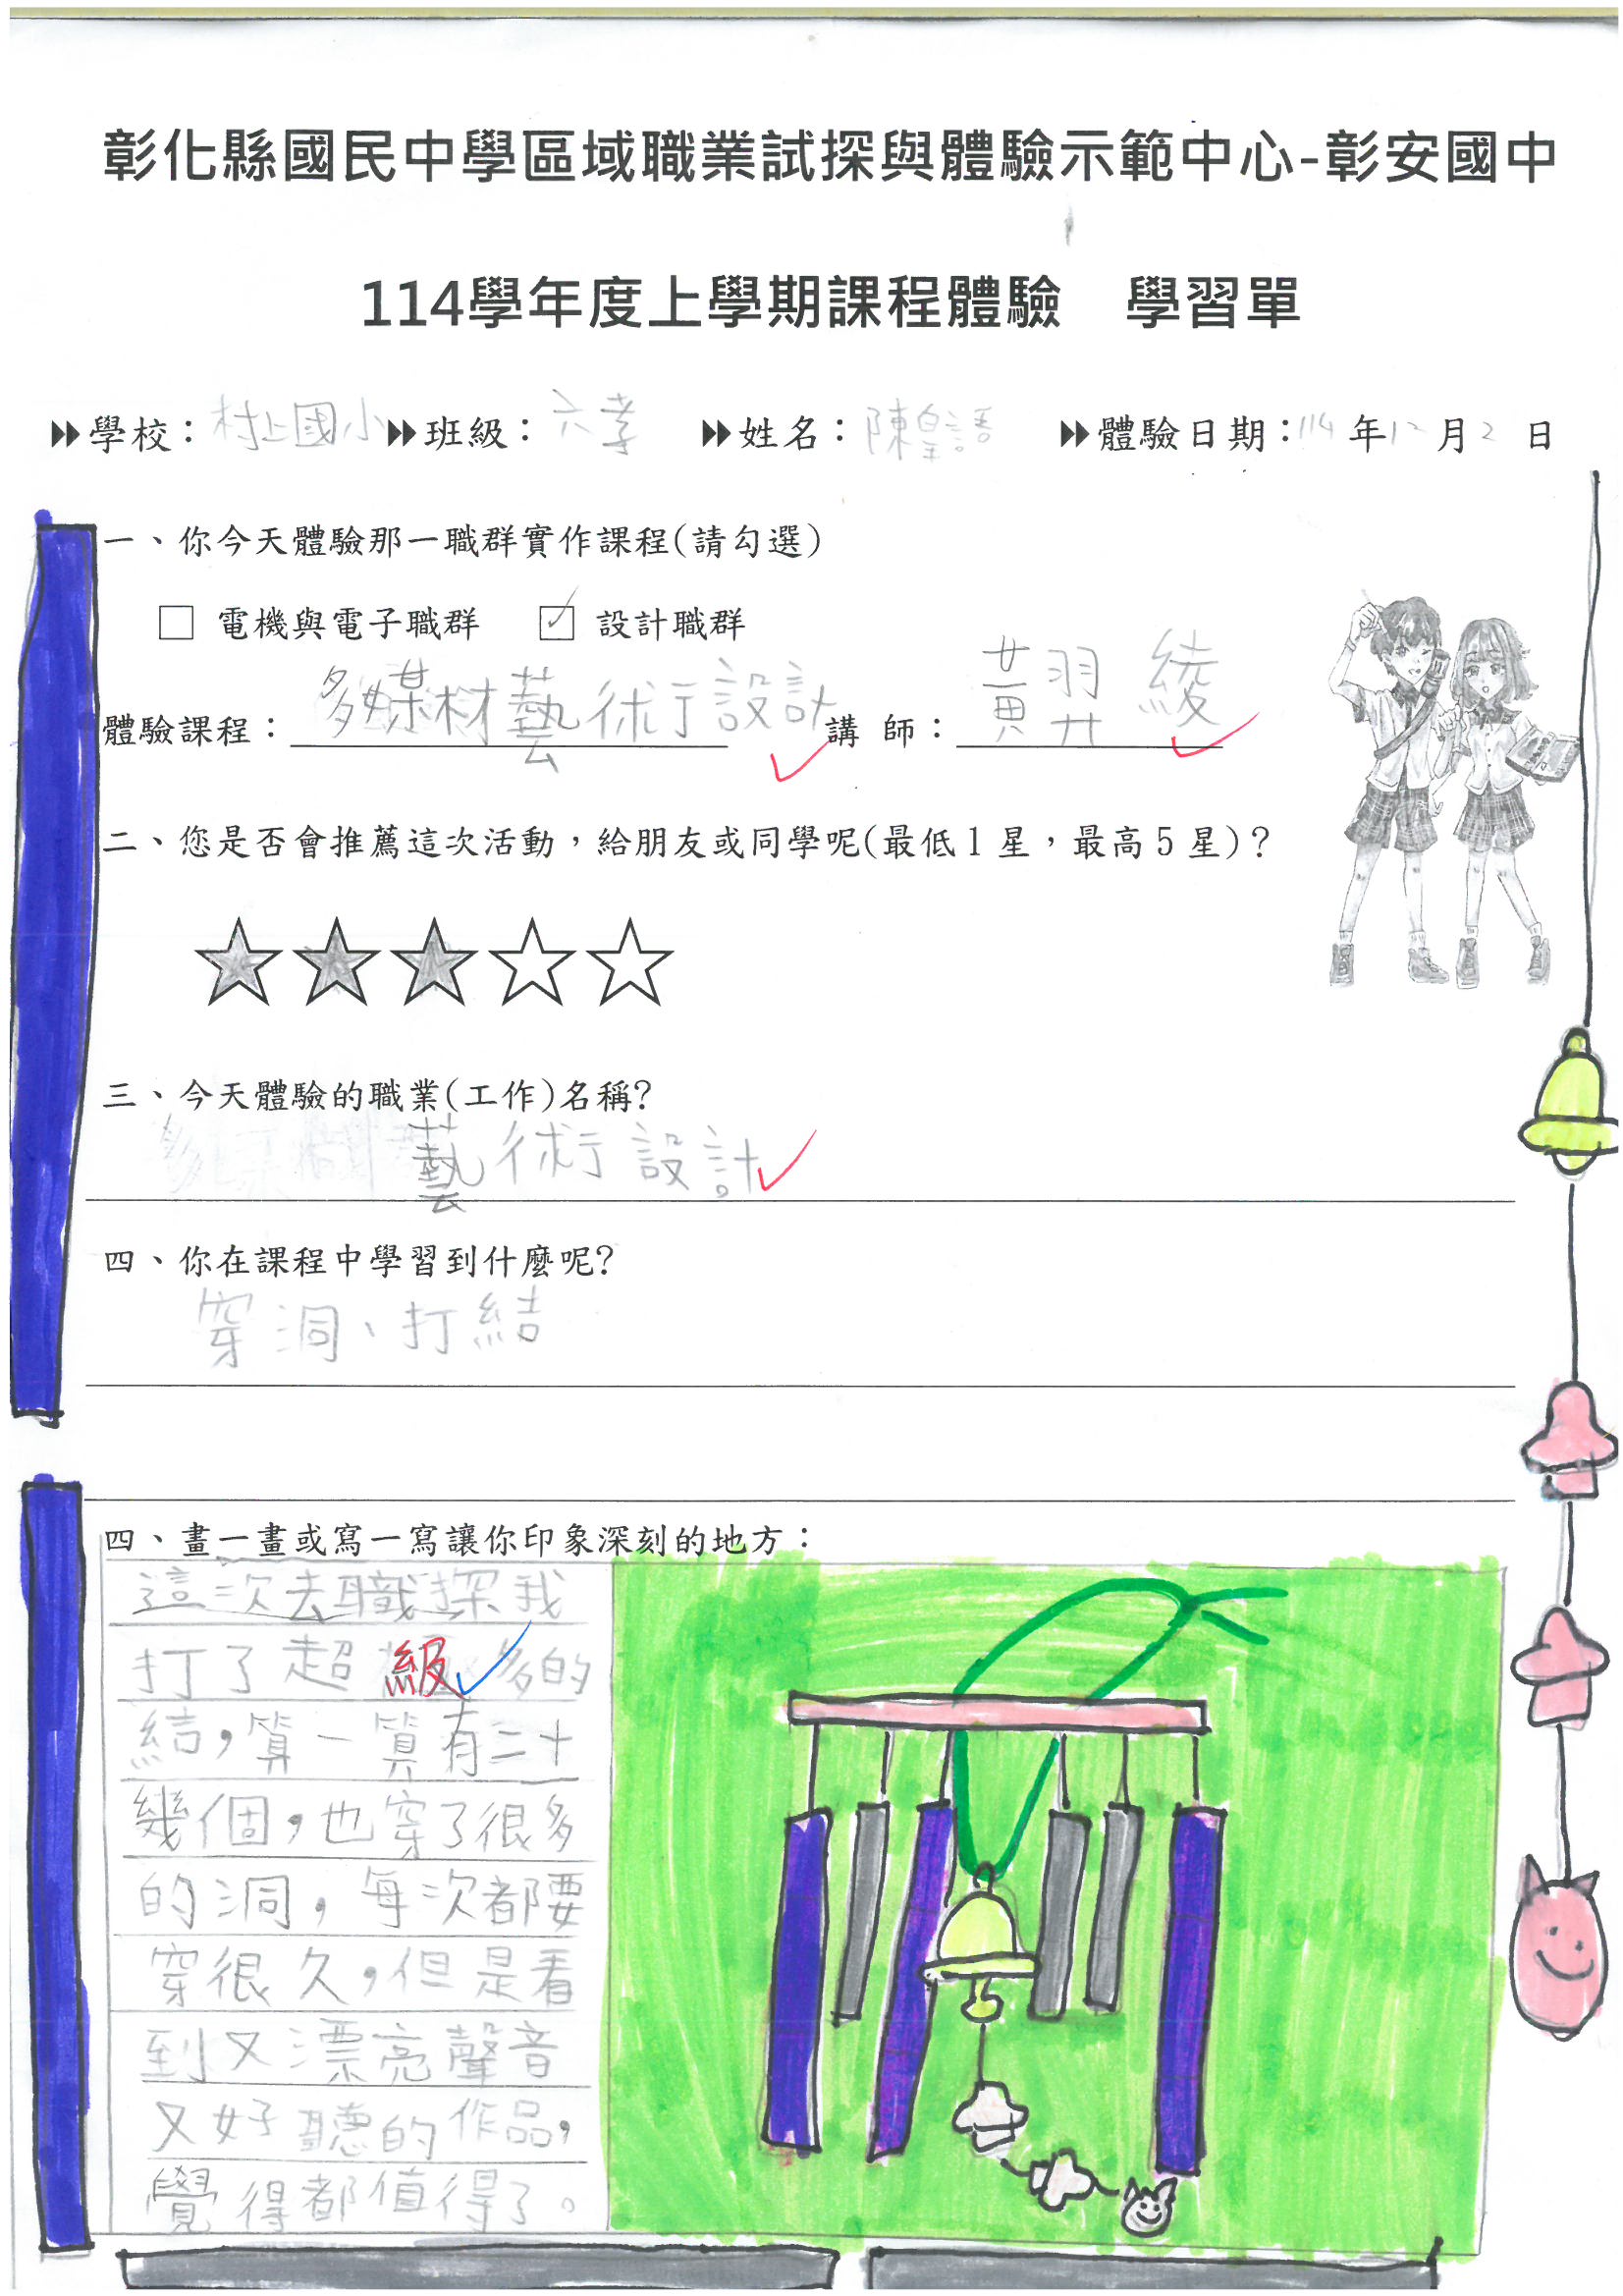 彰化縣國民中學區域職業試探與體驗示範中心-彰安國中
114學年度上學期課程體驗 學習單
學校：村上國小 班級：六孝 姓名：陳皇語 體驗日期：114年12月2日
一、你今天體驗那一職群實作課程(請勾選)
□ 電機與電子職群 ☑ 設計職群
體驗課程：多媒材藝術設計 講 師：黃羿綾
二、您是否會推薦這次活動，給朋友或同學呢(最低1星，最高5星)？
三、今天體驗的職業(工作)名稱?
藝術設計
四、你在課程中學習到什麼呢?
穿洞、打結
四、畫一畫或寫一寫讓你印象深刻的地方：
這次去職探我
打了超級多的
結，算一算有二十
幾個，也穿了很多
的洞，每次都要
穿很久，但是看
到又漂亮聲音
又好聽的作品，
覺得都值得了。